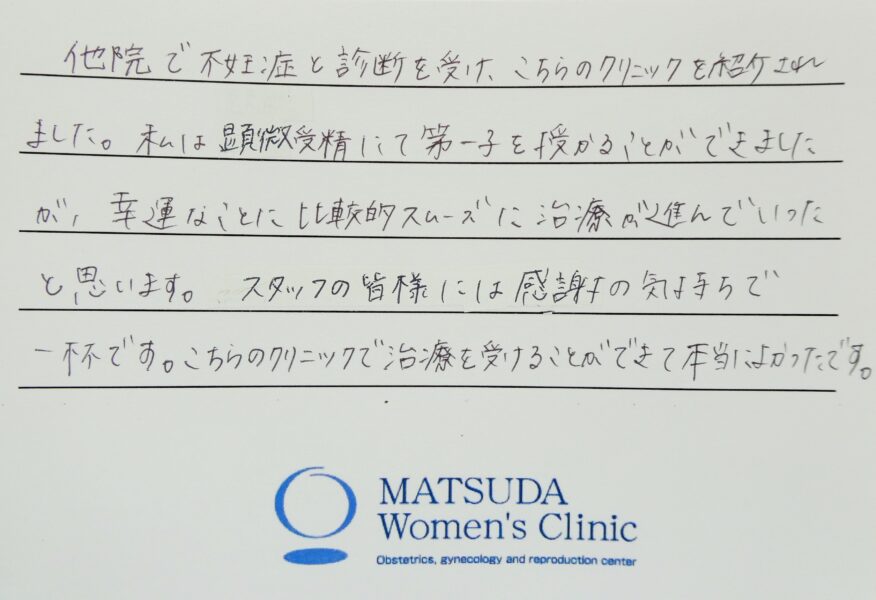 他院で不妊症と診断を受け、こちらのクリニックを紹介され
ました。私は顕微受精にて第一子を授かることができました
が、幸運なことに比較的スムーズに治療が進んでいった
と思います。 スタッフの皆様には感謝の気持ちで
一杯です。こちらのクリニックで治療を受けることができて本当によかったです。
MATSUDA
Women's Clinic
Obstetrics, gynecology and reproduction center